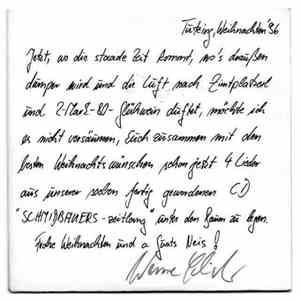 Tutzing, Weihnachten '96
Jetzt, wo die staade Zeit kommt, wo's draußen
damper wird und die Luft nach Zimtplatzerl
und 2-Mark-80-Glühwein duftet, möchte ich
es nicht versäumen, Euch zusammen mit den
besten Weihnachtswünschen schon jetzt 4 Lieder
aus unserer soeben fertig gewordenen CD
"SCHMIDBAUERS-zeitlang" unter den Baum zu legen.
Frohe Weihnachten und a Guats Neis!